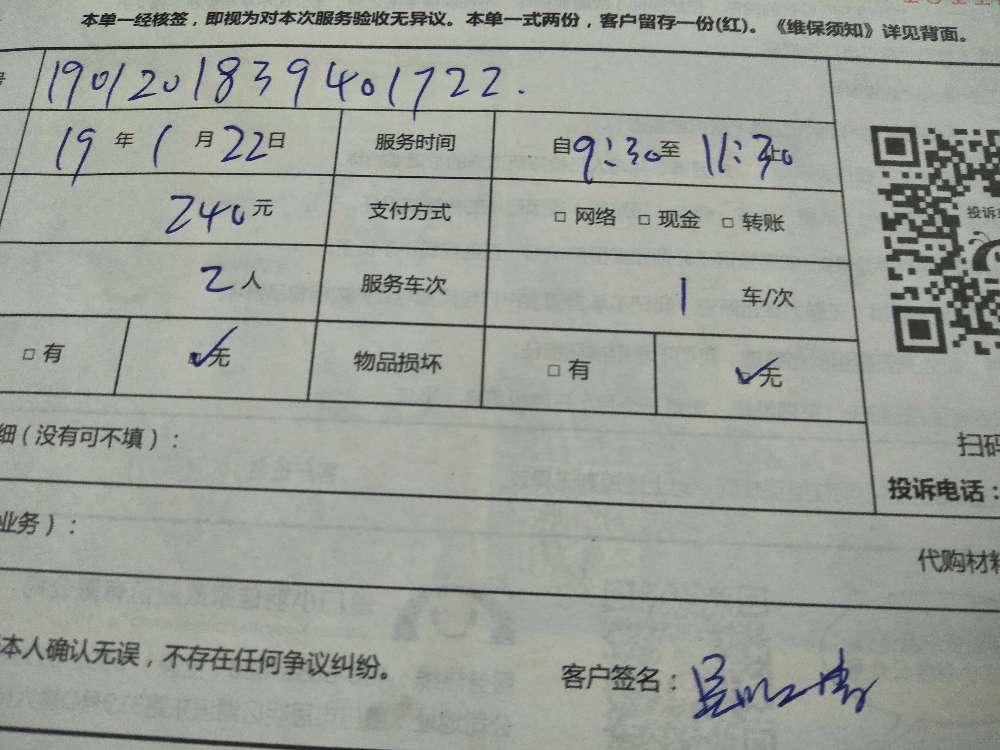 本单一经核签，即视为对本次服务验收无异议。本单一式两份，客户留存一份(红)。《维保须知》详见背面。
号 1901201839401722.
19 年 1 月 22 日 服务时间 自 9:30 至 11:30 止
240 元 支付方式 □ 网络 □ 现金 □ 转账
2 人 服务车次 1 车/次
□ 有 ☑ 无 物品损坏 □ 有 ☑ 无
细（没有可不填）：
扫码
投诉电话：
业务）：
代购材料
本人确认无误，不存在任何争议纠纷。 客户签名：